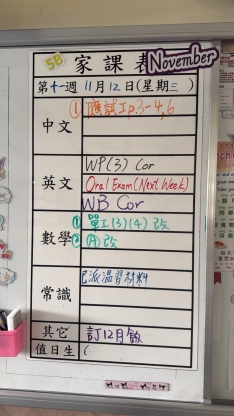 5B 家課表 November
第十一週 11月12日(星期三)
中文 ① 應試工p.3-4,6
英文 WP(3) Cor
Oral Exam (Next Week)
WB Cor
數學 ① 單工(3)(4) 改
② Ⓐ改
常識 已派溫習材料
其它 訂12月飯
值日生